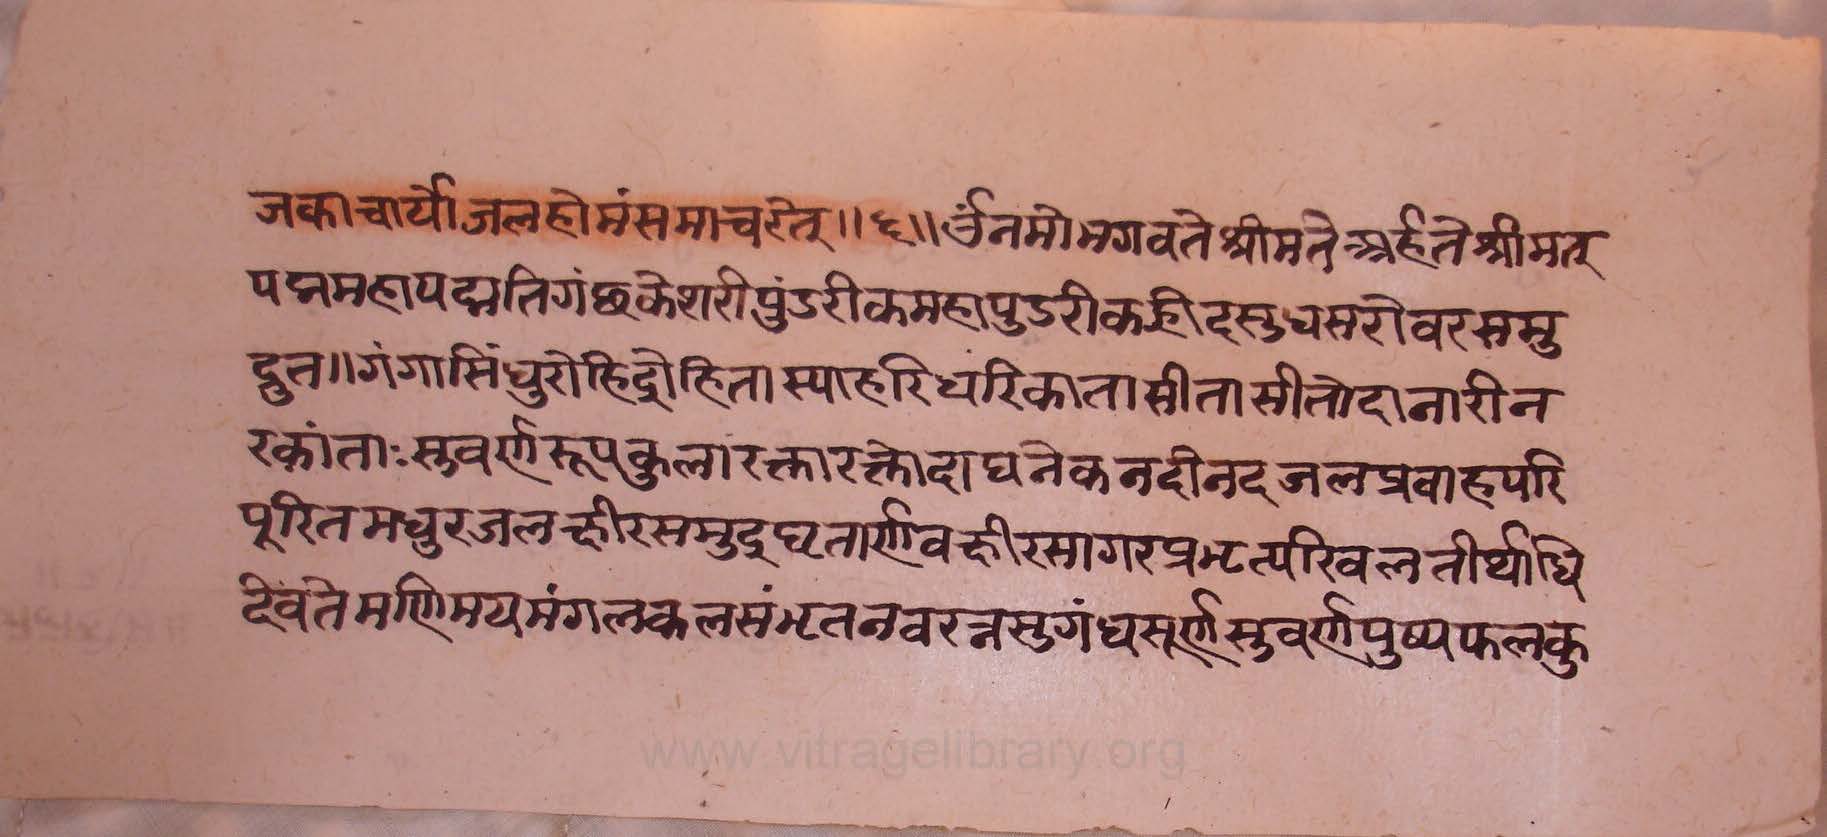 जकाचार्यो जलहोमं समाचरेत् ॥ ६ ॥ ॐ नमो भगवते श्रीमते अर्हते श्रीमत्
पद्ममहापद्मतिगंछकेशरीपुंडरीकमहापुडरीकह्रीदसुधसरोवरसमु
द्भुत ॥ गंगासिंधुरोहिद्रोहितास्याहरिधरिकातासीतासीतोदानारीन
रकांताः सुवर्णरूपकुलारक्तारक्तोदाद्यनेकनदीनदजलप्रवाहपरि
पूरितमधुरजलक्षीरसमुद्घृतार्णवक्षीरसागरप्रभृत्यखिलतीर्थाधि
देवते मणिमयमंगलकलसंभृतनवरन्नसुगंधसूर्णसुवर्णपुष्पफलकु
www.vitragelibrary.org